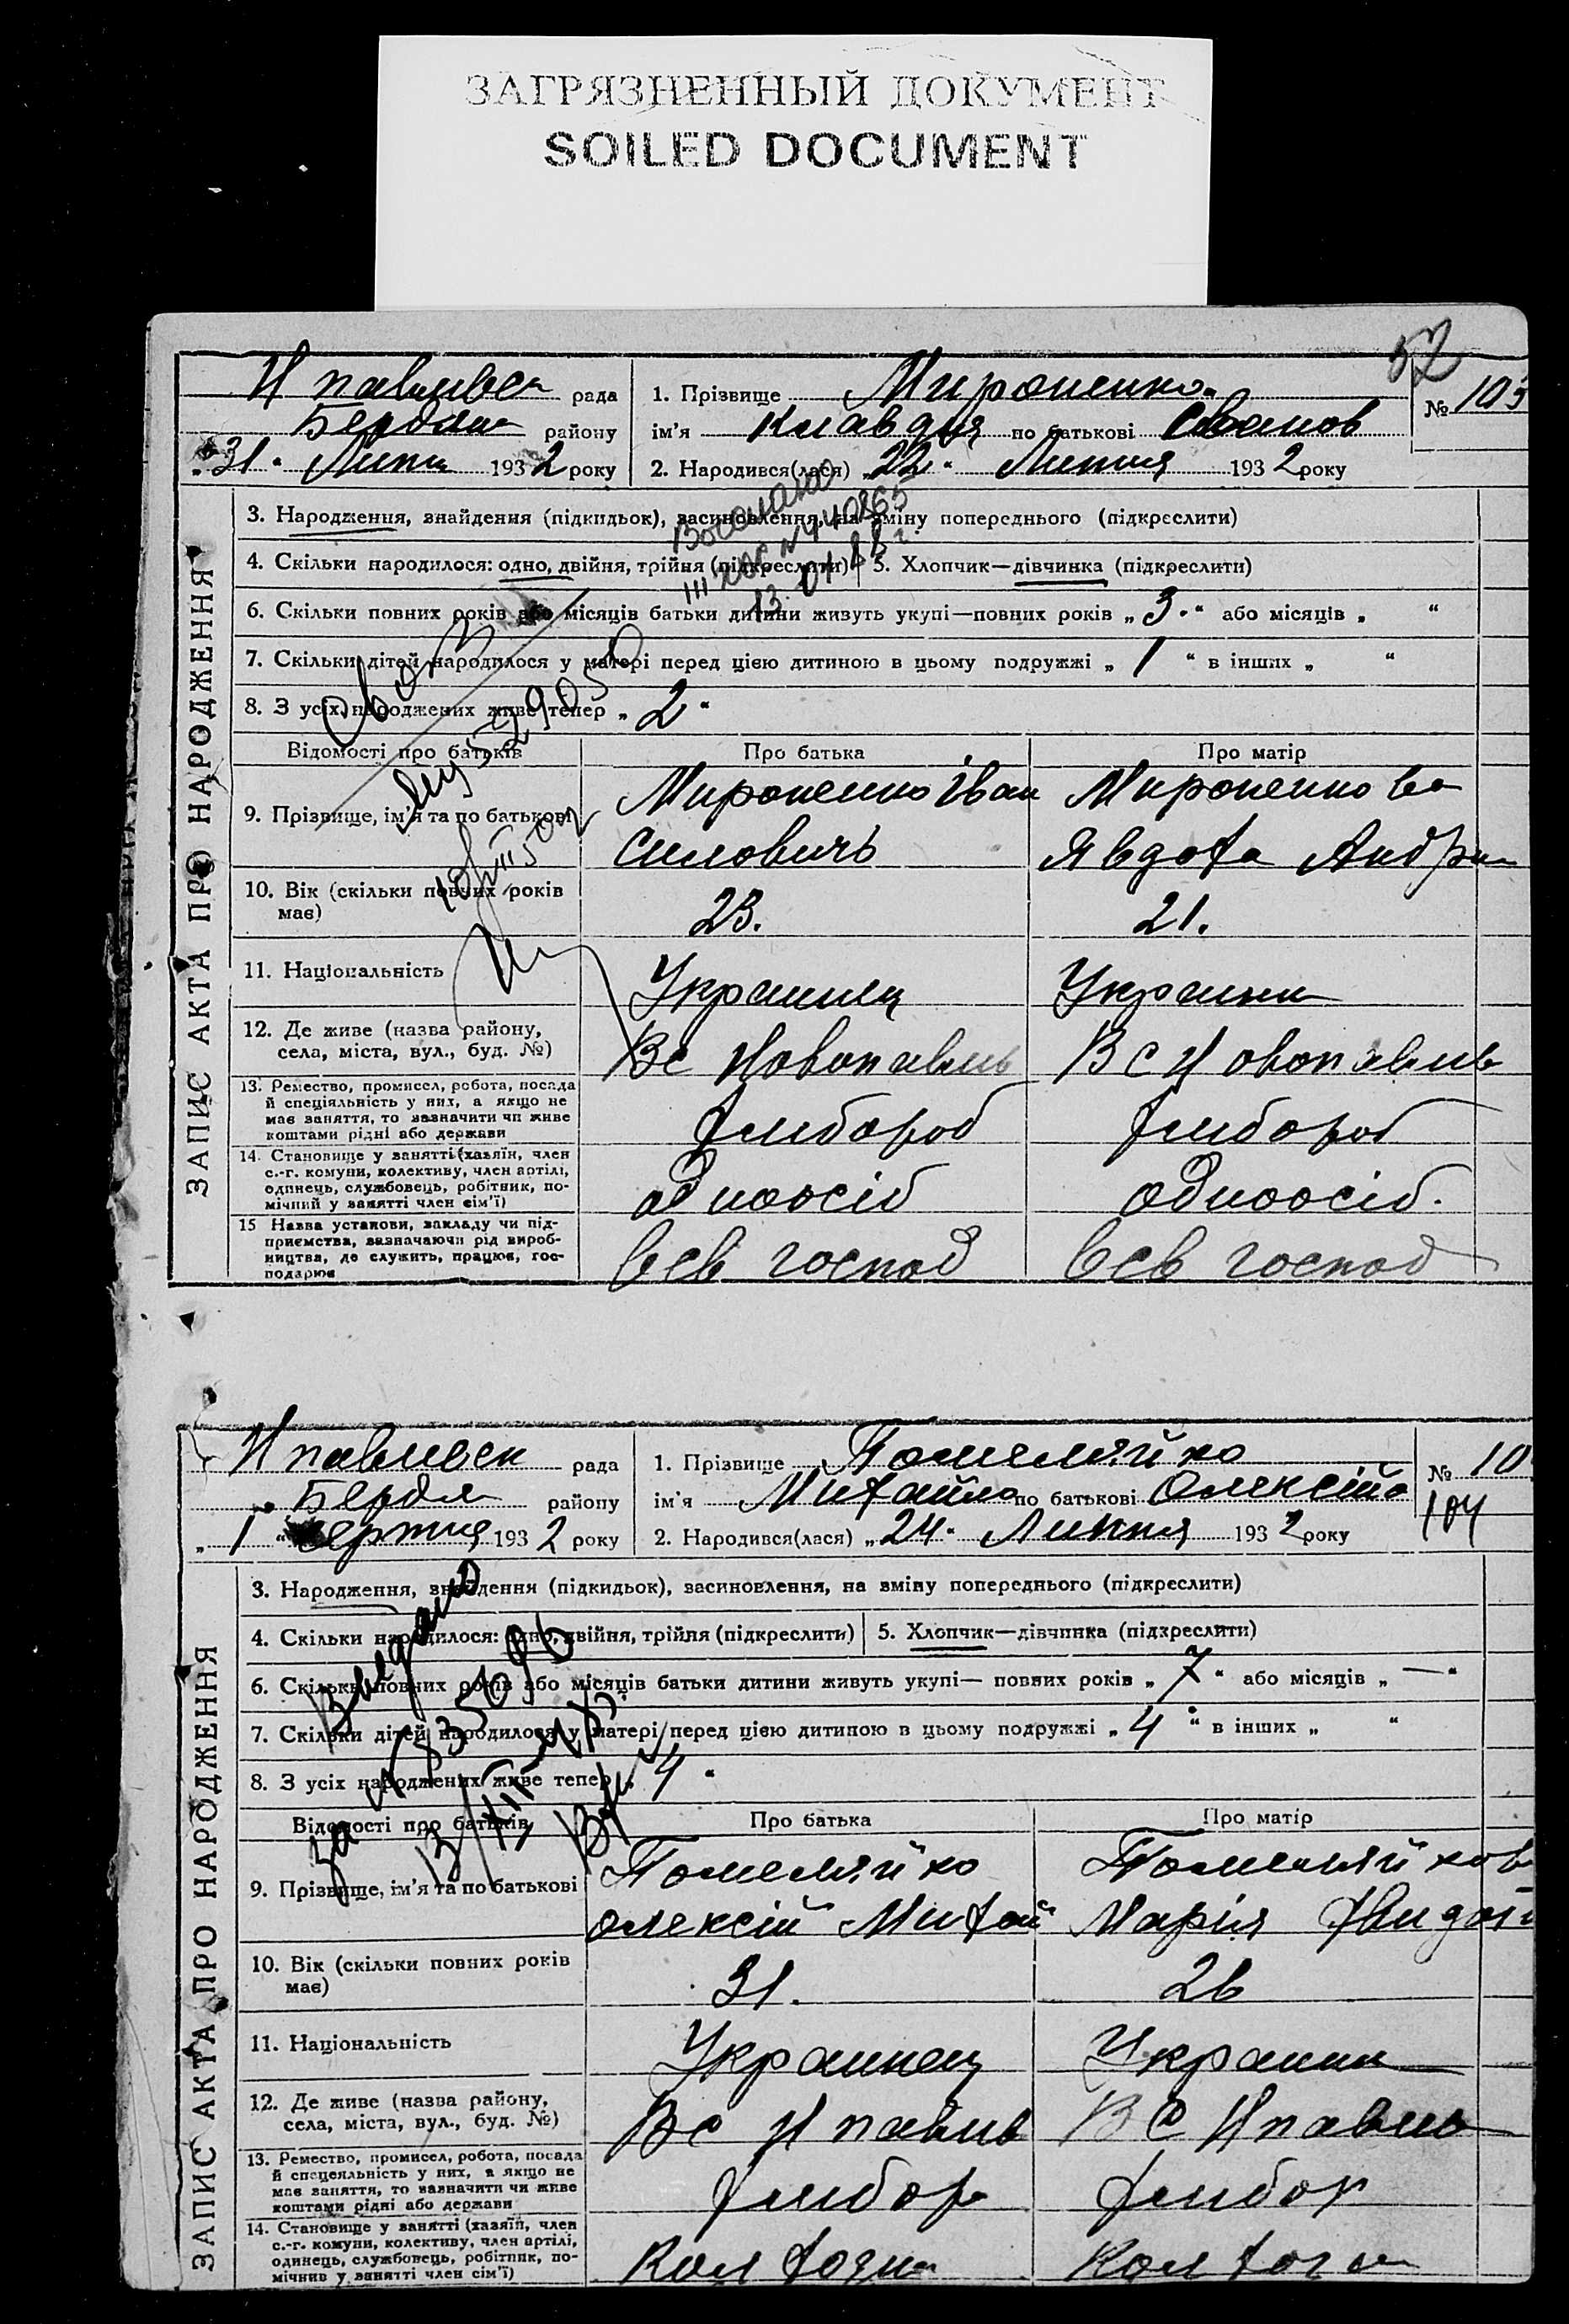 ЗАГРЯЗНЕННЫЙ ДОКУМЕНТ
SOILED DOCUMENT
52
Н павливск рада
Бердян району
31 Липн 1932 року
1. Прізвище Мироненко
ім'я Клавдия по батькові Іванов
2. Народився(лася) „22“ Липня 1932 року
№ 103
ЗАПИС АКТА ПРО НАРОДЖЕННЯ
3. Народження, знайдення (підкидьок), засиновлення, на зміну попереднього (підкреслити)
4. Скільки народилося: одно, двійня, трійня (підкреслити)
5. Хлопчик—дівчинка (підкреслити)
6. Скільки повних років або місяців батьки дитини живуть укупі—повних років „3“ або місяців „ “
7. Скільки дітей народилося у матері перед цією дитиною в цьому подружжі „1“ в інших „ “
8. З усіх народжених живе тепер „2“
Відомості про батьків
Про батька
Про матір
9. Прізвище, ім'я та по батькові
Мироненко Іван
Силовичь
Мироненкова
Явдоха Андри
10. Вік (скільки повних років має)
23.
21.
11. Національність
Украинец
Украинк
12. Де живе (назва району,
села, міста, вул., буд. №)
Вс Новопавлив
Вс Новопавлив
13. Ремество, промисел, робота, посада
й спеціяльність у них, а якщо не
має заняття, то зазначити чи живе
коштами рідні або держави
хлибороб
хлибороб
14. Становище у занятті (хазяїн, член
с.-г. комуни, колективу, член артілі,
одинець, службовець, робітник, по-
мічний у занятті член сім'ї)
одноосіб
одноосіб.
15 Назва установи, закладу чи під-
приємства, зазначаючи рід вироб-
ництва, де служить, працює, гос-
подарює
господ
господ
Н павливск рада
Бердя району
„1“ Серпня 1932 року
1. Прізвище Помеляйко
ім'я Михайло по батькові Олексійо
2. Народився(лася) „24“ Липня 1932 року
№ 10
104
ЗАПИС АКТА ПРО НАРОДЖЕННЯ
3. Народження, знайдення (підкидьок), засиновлення, на зміну попереднього (підкреслити)
4. Скільки народилося: одно, двійня, трійня (підкреслити)
5. Хлопчик—дівчинка (підкреслити)
6. Скільки повних років або місяців батьки дитини живуть укупі— повних років „7“ або місяців „—“
7. Скільки дітей народилося у матері перед цією дитиною в цьому подружжі „4“ в інших „ “
8. З усіх народжених живе тепер „4“
Видано
Відомості про батьків
Про батька
Про матір
9. Прізвище, ім'я та по батькові
Помеляйко
Олексій Михай
Помеляйков
Марія
10. Вік (скільки повних років має)
31.
26
11. Національність
Украинец
Украинк
12. Де живе (назва району,
села, міста, вул., буд. №)
Вс Н павлив
Вс Н павлив
13. Ремество, промисел, робота, посада
й спецеяльність у них, а якщо не
має заняття, то зазначити чи живе
коштами рідні або держави
хлибор
хлибор
14. Становище у занятті (хазяїн, член
с.-г. комуни, колективу, член артілі,
одинець, службовець, робітник, по-
мічнив у занятті член сім'ї)